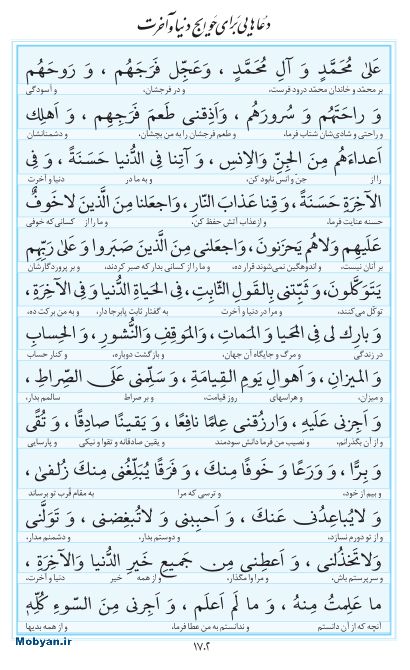 دعاهایی برای حوایج دنیا و آخرت
عَلىٰ مُحَمَّدٍ وَ آلِ مُحَمَّدٍ ، وَعَجِّل فَرَجَهُم ، وَ رَوحَهُم
بر محمّد و خاندان محمّد درود فرست، و در فرجشان، و آسودگی
وَ راحَتَهُم وَ سُرورَهُم ، وَاَذِقنى طَعمَ فَرَجِهِم ، وَ اَهلِك
و راحتی و شادی‌شان شتاب فرما. و طعم فرجشان را به من بچشان. و دشمنانشان
اَعداءَهُم مِنَ الجِنِّ وَالاِنسِ ، وَ آتِنا فِى الدُّنيا حَسَنَةً ، وَ فِى
را از جنّ و انس نابود کن. و به ما در دنیا و آخرت
الآخِرَةِ حَسَنَةً ، وَ قِنا عَذابَ النّارِ ، وَاجعَلنا مِنَ الَّذينَ لاخَوفٌ
حسنه عنایت فرما. و از عذاب آتش حفظ کن. و ما را از کسانی که خوفی
عَلَيهِم وَلاهُم يَحزَنونَ ، وَاجعَلنى مِنَ الَّذينَ صَبَروا وَ عَلىٰ رَبِّهِم
بر آنان نیست، و اندوهگین نمی‌شوند قرار ده، و ما را از کسانی بدار که صبر کردند، و بر پروردگارشان
يَتَوَكَّلونَ، وَ ثَبِّتنى بِالقَولِ الثّابِتِ، فِى الحَياةِ الدُّنيا وَ فِى الآخِرَةِ،
توکّل می‌کنند، و مرا در دنیا و آخرت به گفتار ثابت پابرجا دار، و به من برکت ده،
وَ بارِك لى فِى المَحيا وَ المَماتِ، وَالمَوقِفِ وَالنُّشورِ ، وَ الحِسابِ
در زندگی و مرگ و جایگاه آن جهان، و بازگشت دوباره، و کنار حساب
وَ الميزانِ ، وَ اَهوالِ يَومِ القِيامَةِ ، وَ سَلِّمنى عَلَى الصِّراطِ ،
و میزان، و هراسهای روز قیامت، و بر صراط سالمم بدار،
وَ اَجِزنى عَلَيهِ ، وَارزُقنى عِلمًا نافِعًا ، وَ يَقينًا صادِقًا ، وَ تُقًى
و از آن بگذرانم، و نصیب من فرما دانش سودمند و یقین صادقانه و تقوا و نیکی و پارسایی
وَ بِرًّا ، وَ وَرَعًا وَ خَوفًا مِنكَ ، وَ فَرَقًا يُبَلِّغُنى مِنكَ زُلفىٰ ،
و بیم از خود، و ترسی که مرا به مقام قُرب تو برساند
وَ لايُباعِدُنى عَنكَ ، وَ اَحبِبنى وَ لاتُبغِضنى ، وَ تَوَلَّنى
و از تو دورم نسازد، و دوستم بدار، و دشمنم مدار،
وَلاتَخذُلنى ، وَ اَعطِنى مِن جَميعِ خَيرِ الدُّنيا وَالآخِرَةِ ،
و سرپرستم باش، و مرا وا مگذار، و از همه خیر دنیا و آخرت،
ما عَلِمتُ مِنهُ ، وَ ما لَم اَعلَم ، وَ اَجِرنى مِنَ السّوءِ كُلِّهِ
آنچه که از آن دانستم و ندانستم به من عطا فرما. و از همه بدیها
۱۷۰۲
Mobyan.ir